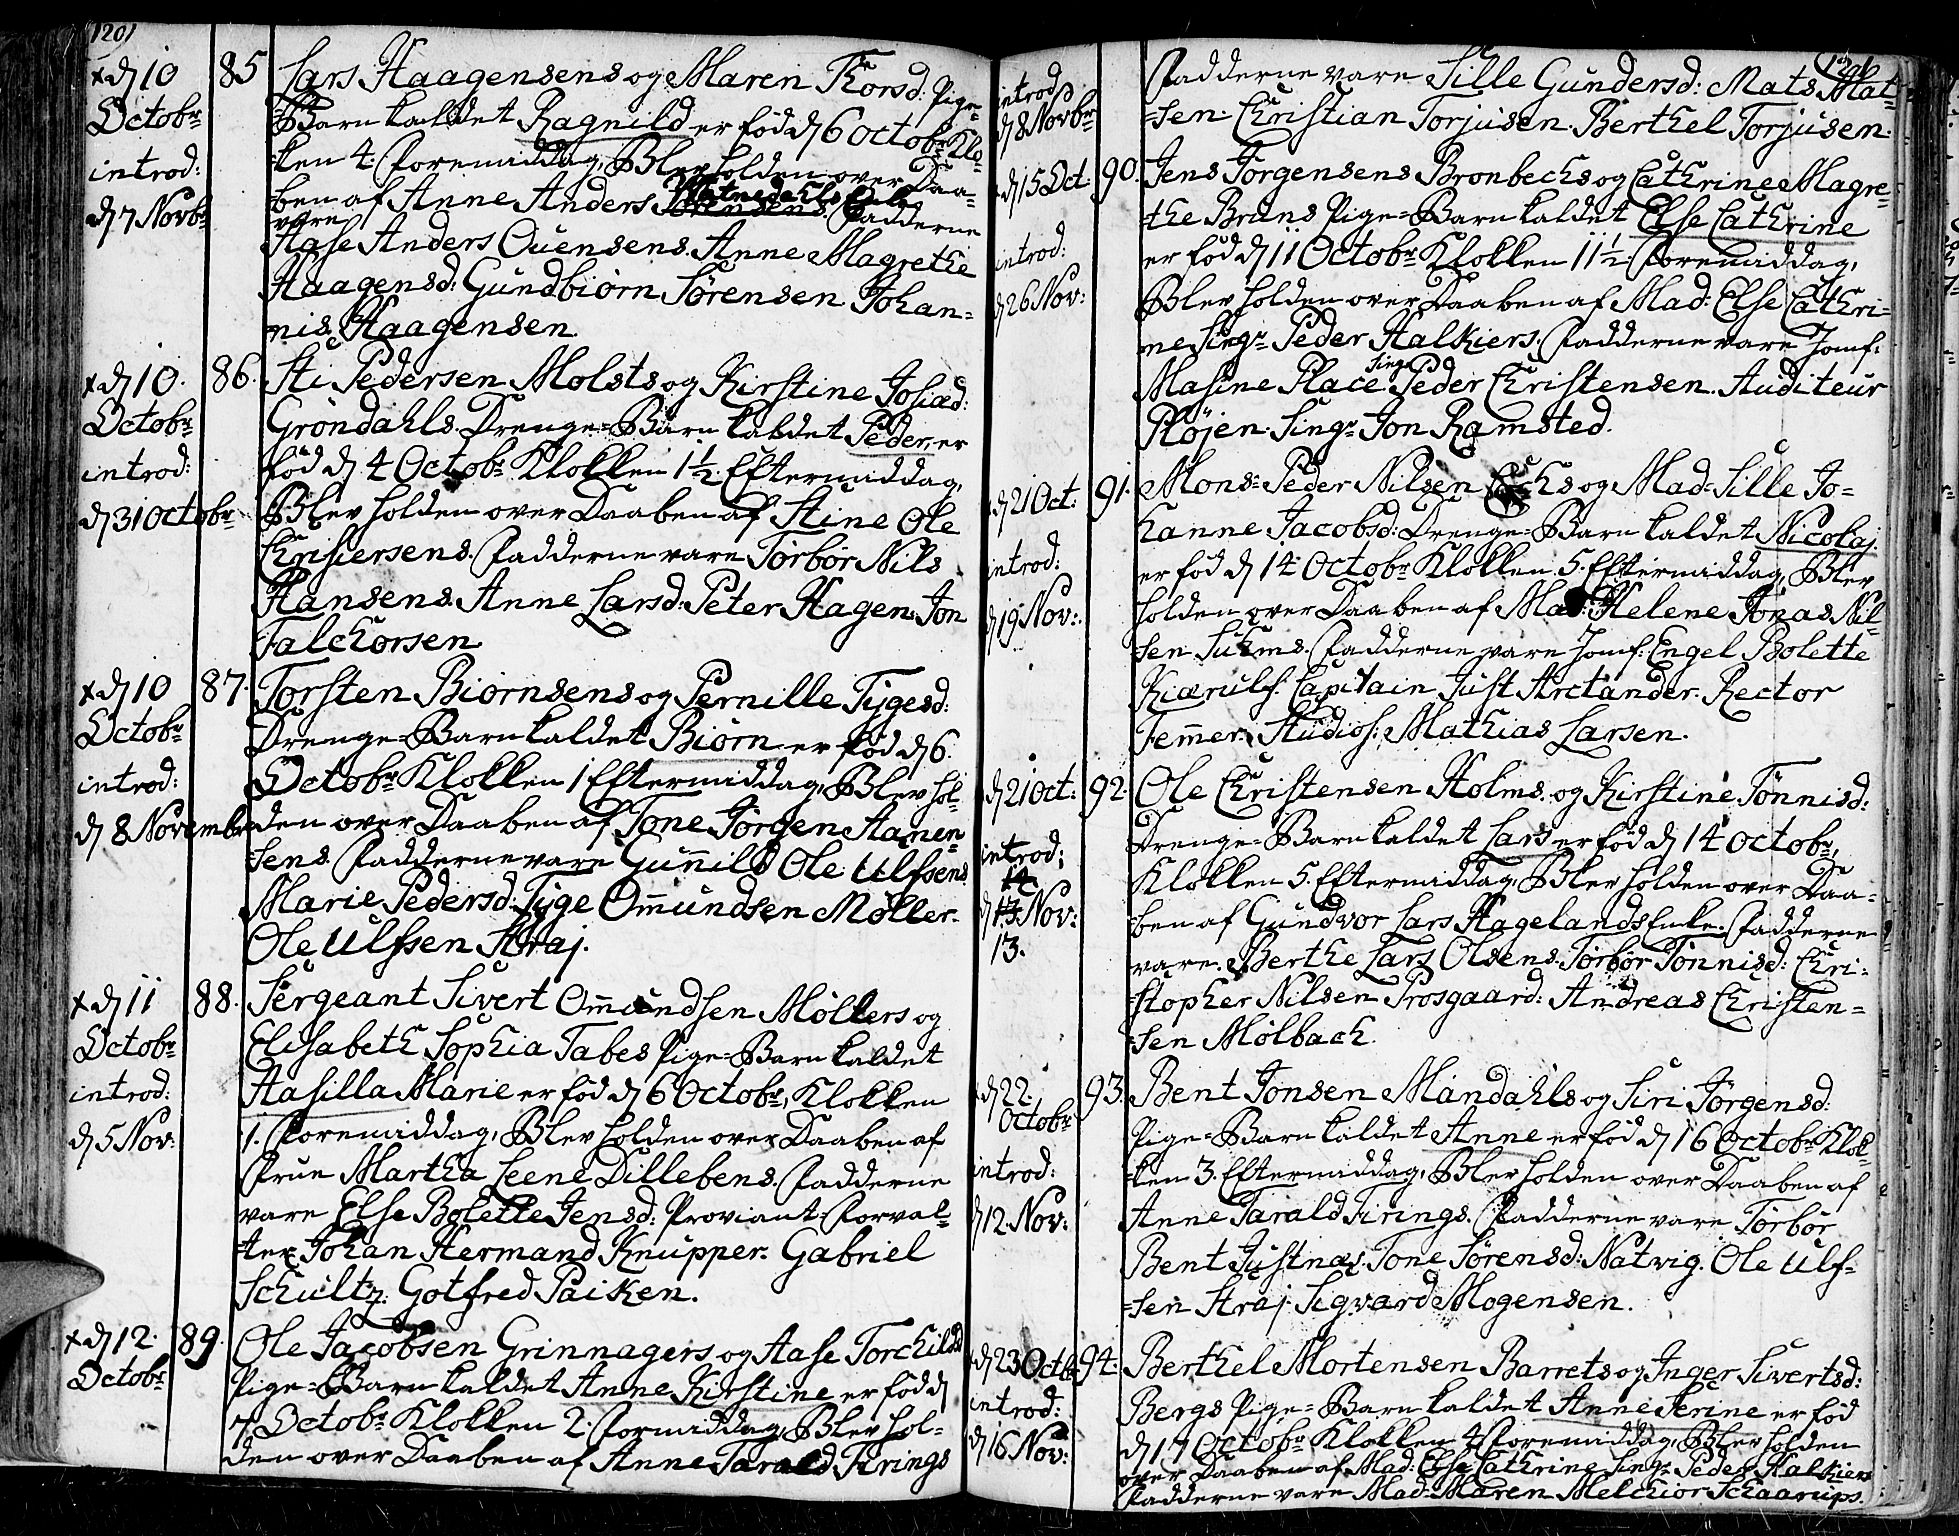 1201
x d 10 Octobr
introd:
d 7 Novbr
85
Lars Haagensens og Maren Thorsd: Pige-
Barn kaldet Ragnild er fød d 6 Octobr Klo-
ken 4. Formiddag, Blev holden over Daa-
ben af Anne Anders Enke. Fadderne
vare
Aase Anders Ouensens. Anne Magrethe
Haagensd: Gundbiørn Sørensen. Johan-
nis Haagensen.
x d 10. Octobr
introd:
d 31 Octobr
86.
Sti Pedersen Molsts og Kirstine Josiæd:
Grøndahls. Drenge-Barn kaldet Peder, er
fød d 4 Octobr Klokken 1 1/2. Eftermiddag,
Blev holden over Daaben af Stine Ole
Chrisiersens. Fadderne vare Torbor Nils
Hansens. Anne Larsd: Peter Hagen. Jon
Falchorsen.
x d 10 Octobr
introd:
d 8 November
87.
Torsten Biørnsens og Pernille Tygesd:
Drenge-Barn kaldet Biørn er fød d 6.
Octobr Klokken 1 Eftermiddag, Blev hol-
den over Daaben af Tone Jørgen Aanen-
sens. Fadderne vare Gunnild Ole Ulfsens
Marie Pedersd: Tyge Ommundsen Møller.
Ole Ulfsen Straj.
x d 11 Octobr
introd:
d 5 Nov:
88.
Sergeant Sivert Ommundsen Møllers og
Elisabeth Sophia Tabes Pige-Barn kaldet
Aasilla Marie er fød d 6 Octobr, Klokken
1. Foremiddag, Blev holden over Daaben af
Frue Martha Leene Dillebens. Fadderne
vare Else Bolette Jensd: Proviant-Forval-
ter Johan Hermand Knupper. Gabriel
Schultz. Gotfred Paiken.
x d 12. Octobr
89.
Ole Jacobsen Grinnagers og Aase Torchildsd
Pige-Barn kaldet Anne Kirstine er fød d
7 Octobr Klokken 2. Formiddag, Blev hol-
den over Daaben af Anne Tarald Tirings
1201
introd
d 8 Novbr
Fadderne vare Sille Gundersd: Mats Mat-
sen. Christian Torjusen. Berthel Torjusen.
d 15 Oct:
introd:
d 26 Nov:
90.
Jens Jørgensens Bronbechs og Cathrine Magre-
the Bruns Pige-Barn kaldet Else Cathrine
er fød d 11 Octobr Klokken 11 1/2. Foremiddag,
Blev holden over Daaben af Mad: Else Cathri-
ne Singr Peder Halkiers. Fadderne vare Jomf:
Masine Place Singr Peder Christensen. Auditeur
Pløjen. Singr Jon Ramsted.
d 21 Oct:
introd:
d 19 Nov:
91.
Mons: Peder Nilsen og Mad: Sille Jo-
hanne Jacobsd: Drenge-Barn kaldet Nicolaj
er fød d 14 Octobr Klokken 5. Eftermiddag, Blev
holden over Daaben af Mad: Helene Jonas Nil-
sen Suhms. Fadderne vare Jomf: Engel Bolette
Kiærulf. Capitain Just Arctander. Rector
Femmer. Studios: Mathias Larsen.
d 21 Oct:
introd:
14
d 13 Nov:
13.
92.
Ole Christensen Holms. og Kirstine Tønnisd:
Drenge-Barn kaldet Lars er fød d 14 Octobr,
Klokken 5. Eftermiddag, Blev holden over Daa-
ben af Gundvor Lars Hagelands Enke. Fadderne
vare. Berthe Lars Olsens. Torbor Tønnisd: Chri-
stopher Nilsen Prosgaard: Andreas Christen-
sen Mølbach.
d 22. Octobr
introd:
d 12. Nov:
93.
Bent Jonsen Mandahls og Siri Jørgensd:
Pige-Barn kaldet Anne er fød d 16 Octobr Klok-
ken 3. Eftermiddag, Blev holden over Daaben af
Anne Tarald Tirings. Fadderne vare Torbor
Bent Justnæs. Tone Sørensd: Natvig. Ole Ulf-
sen Straj. Sigvard Mogensen.
d 23 Octb
introd:
d 16 Nov:
94.
Berthel Mortensen Barrets og Inger Sivertsd:
Bergs Pige-Barn kaldet Anne Serine er fød
d 17 Octobr Klokken 4 Foremiddag, Blev holden
over Daaben af Mad: Else Cathrine Singr Peder Halkiers
Fadderne vare Mad: Maren Melchior Schaarups.